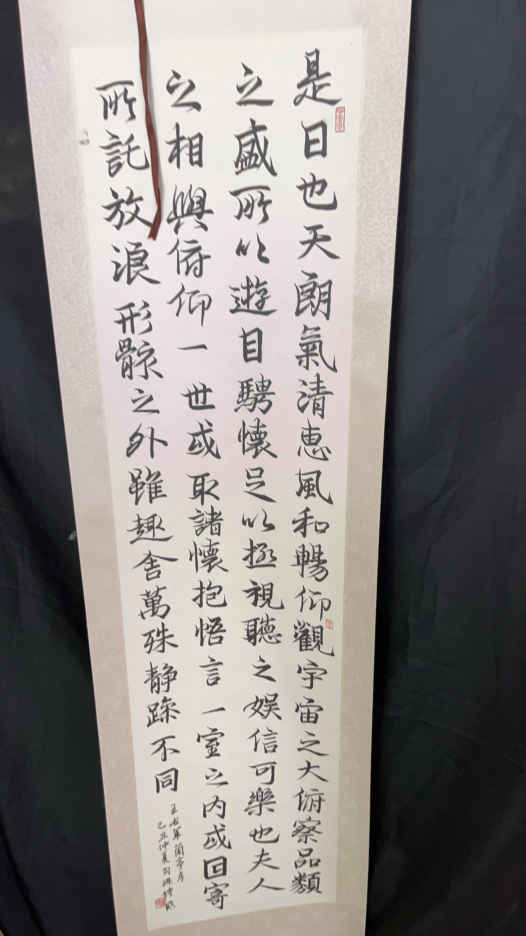 是日也天朗氣清惠風和暢仰觀宇宙之大俯察品類
之盛所以遊目騁懷足以極視聽之娛信可樂也夫人
之相與俯仰一世或取諸懷抱悟言一室之内或因寄
所託放浪形骸之外雖趣舍萬殊静躁不同
王右軍蘭亭序
己丑仲夏